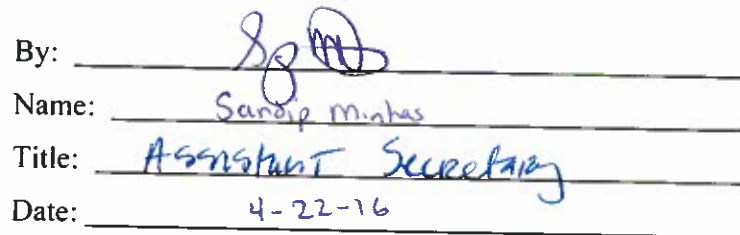 By:
Name: Sandip Minhas
Title: Assistant Secretary
Date: 4-22-16